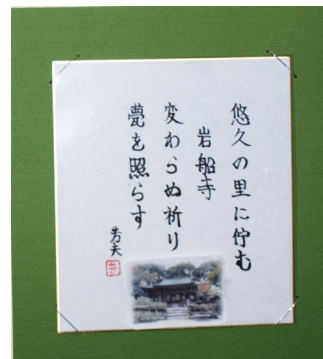 悠久の里に佇む
岩船寺
変わらぬ祈り
甍を照らす
芳夫